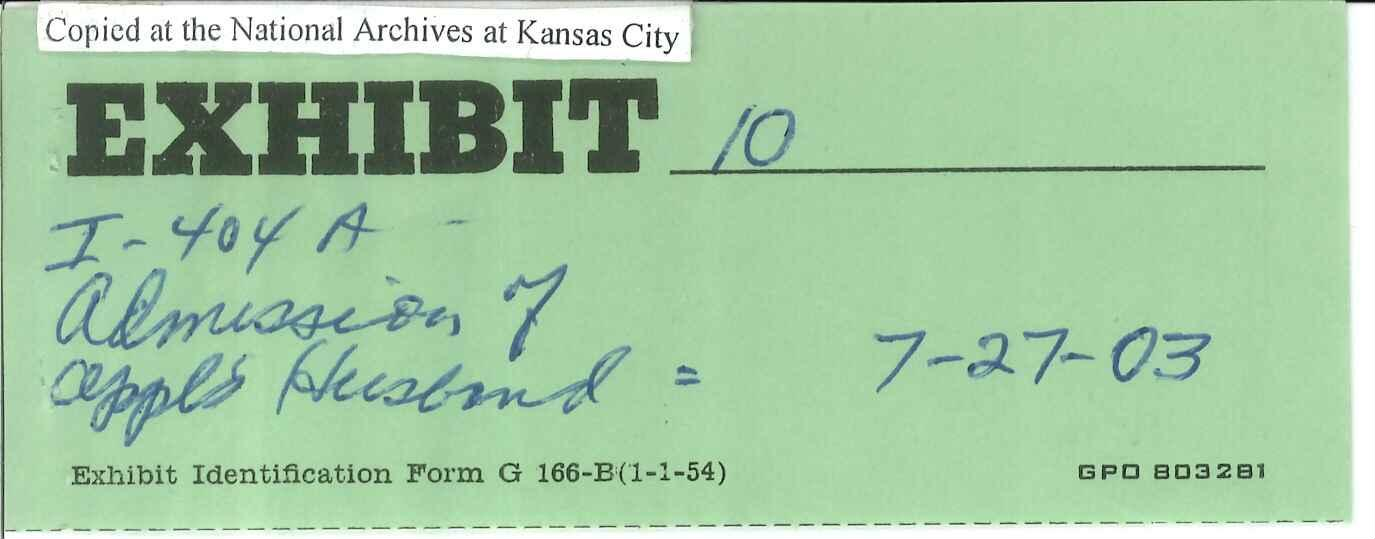 Copied at the National Archives at Kansas City
EXHIBIT 10
I-404 A -
Admission of
appl's Husband = 7-27-03
Exhibit Identification Form G 166-B(1-1-54) GPO 803281